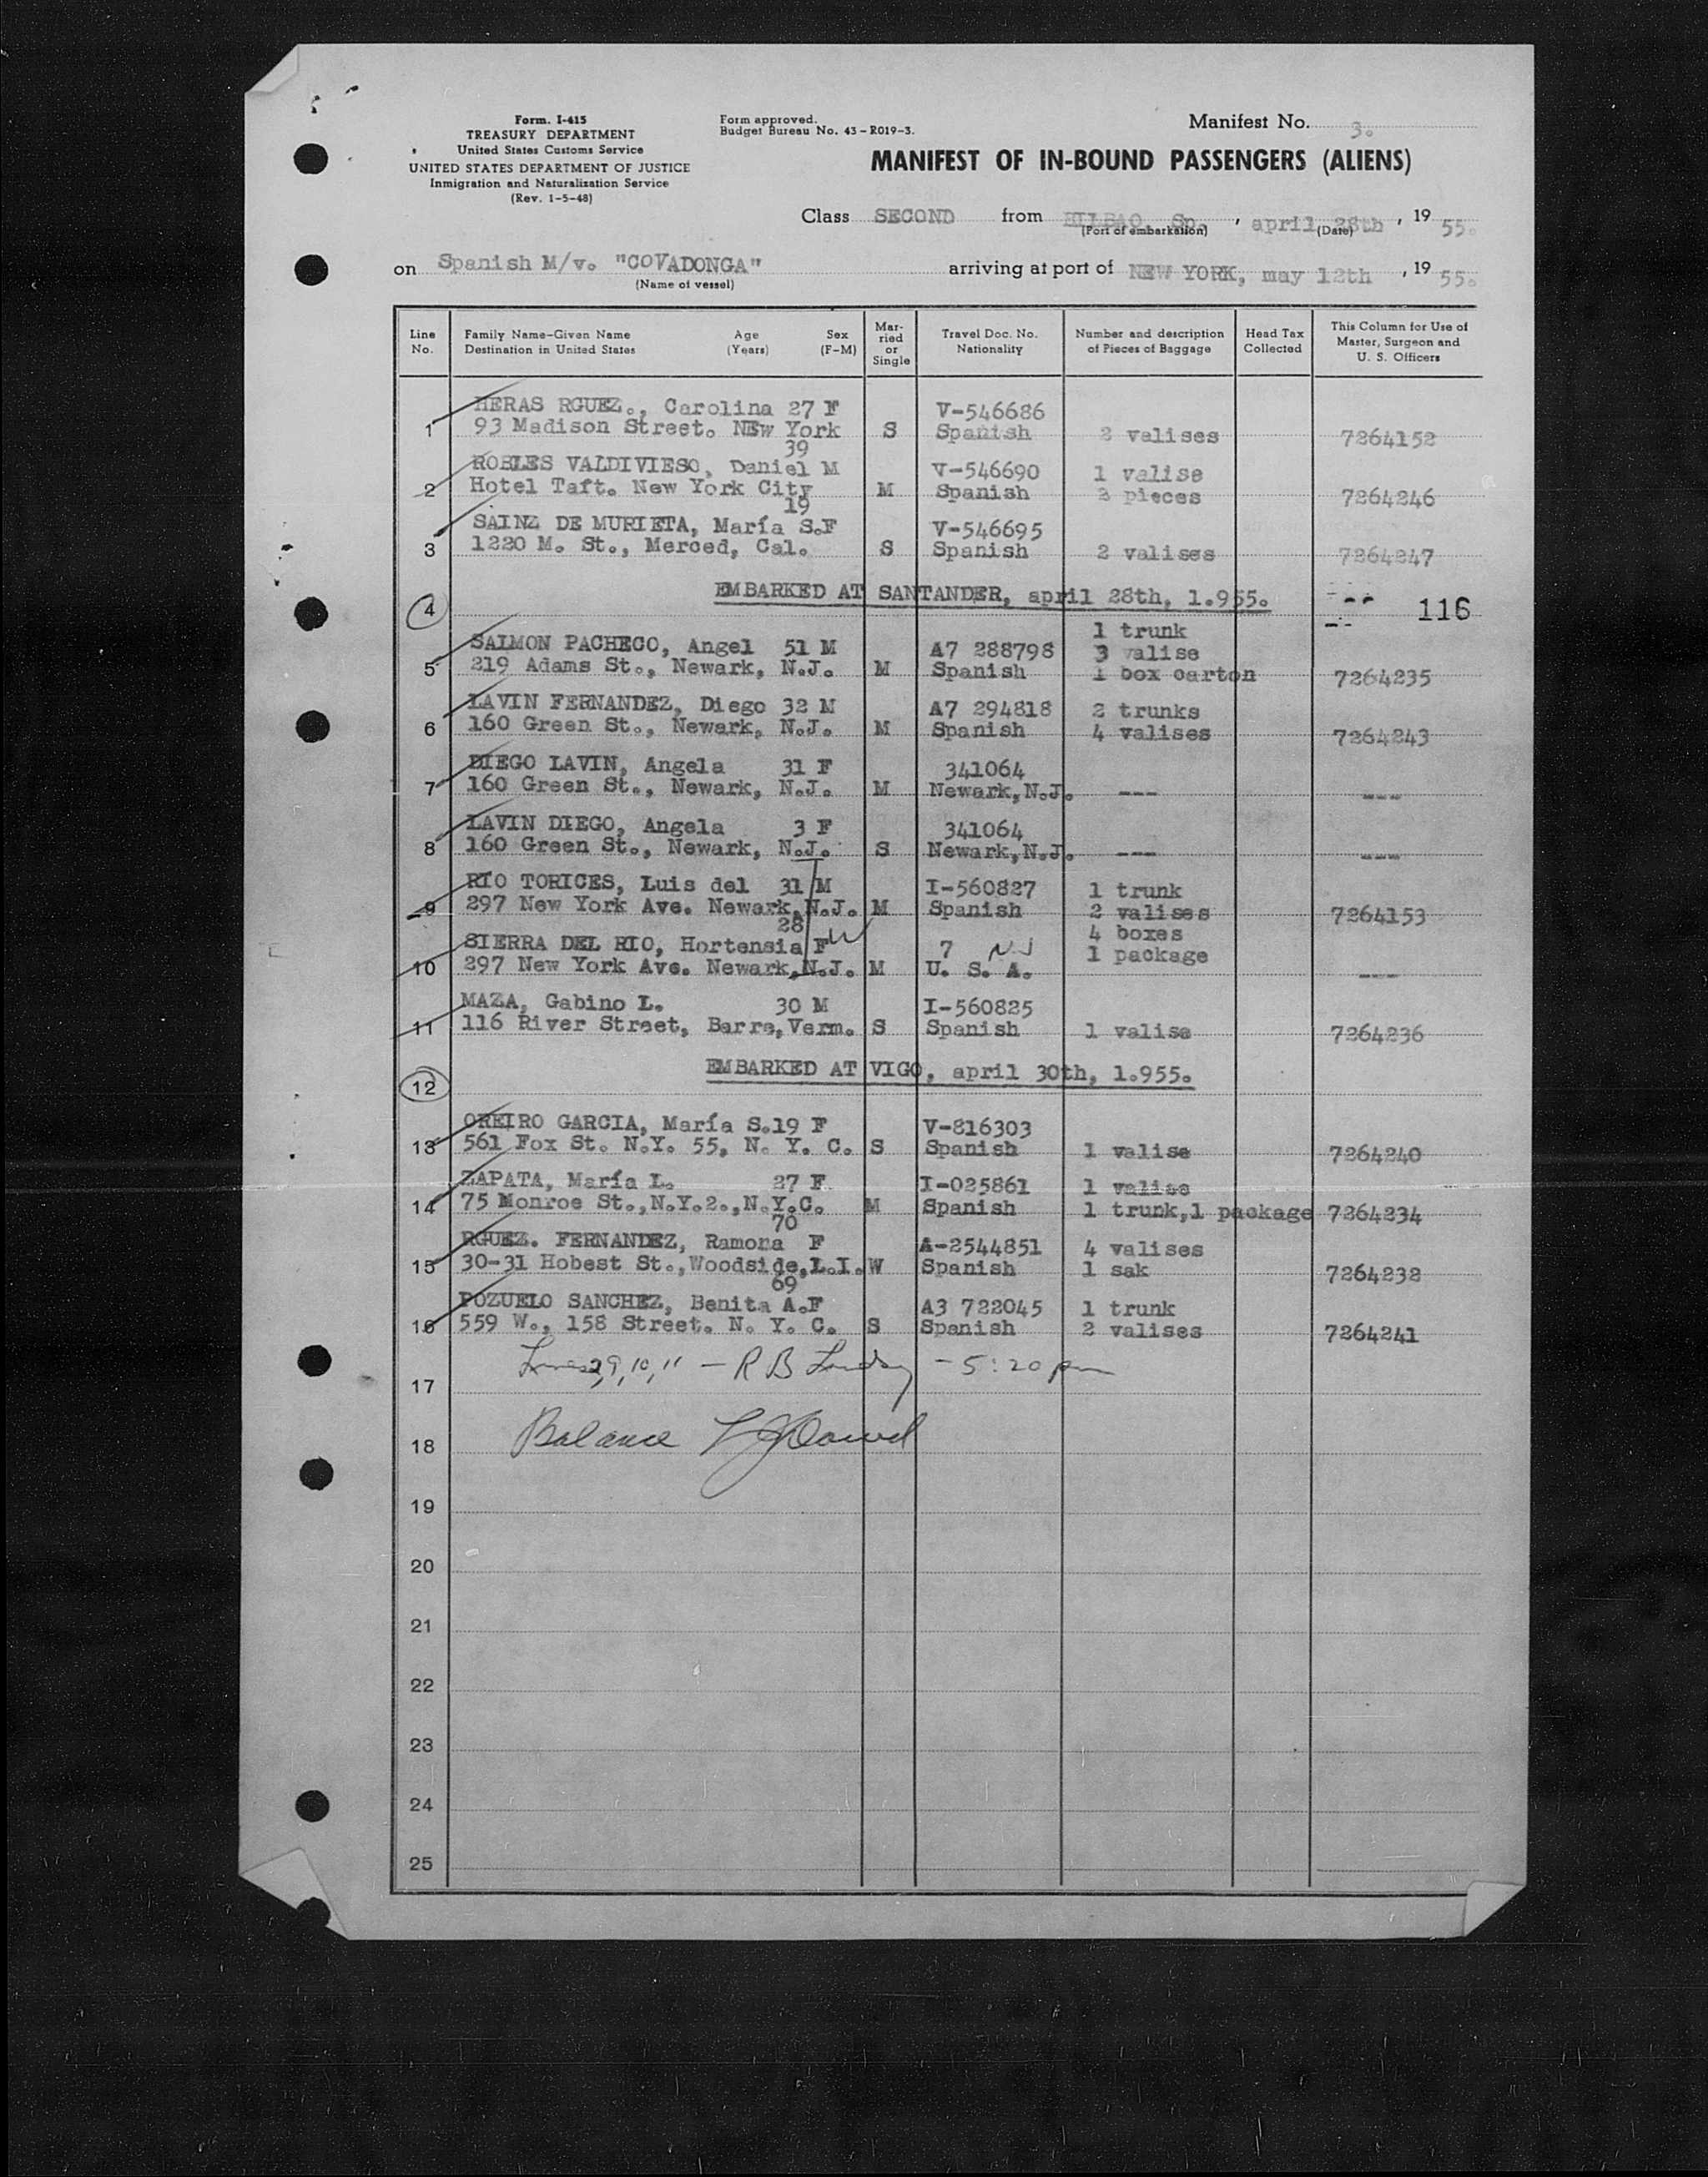 Form. I-415
TREASURY DEPARTMENT
United States Customs Service
UNITED STATES DEPARTMENT OF JUSTICE
Inmigration and Naturalization Service
(Rev. 1-5-48)
Form approved.
Budget Bureau No. 43-R019-3.
Manifest No. 3.
MANIFEST OF IN-BOUND PASSENGERS (ALIENS)
Class SECOND from BILBAO, Sp. , april 28th , 19 55.
(Port of embarkation) (Date)
on Spanish M/v. "COVADONGA" arriving at port of NEW YORK, may 12th , 19 55.
(Name of vessel)
Line No. Family Name-Given Name Destination in United States Age (Years) Sex (F-M) Mar-ried or Single Travel Doc. No. Nationality Number and description of Pieces of Baggage Head Tax Collected This Column for Use of Master, Surgeon and U. S. Officers
HERAS RGUEZ., Carolina 27 F V-546686
1 93 Madison Street. NEw York S Spanish 2 valises 7264152
39
ROBLES VALDIVIESO, Daniel M V-546690 1 valise
2 Hotel Taft. New York City M Spanish 3 pieces 7264246
19
SAINZ DE MURIETA, María S.F V-546695
3 1220 M. St., Merced, Cal. S Spanish 2 valises 7264247
4 EMBARKED AT SANTANDER, april 28th, 1.955. 116
1 trunk
SALMON PACHECO, Angel 51 M A7 288798 3 valise
5 219 Adams St., Newark, N.J. M Spanish 1 box carton 7264235
LAVIN FERNANDEZ, Diego 32 M A7 294818 2 trunks
6 160 Green St., Newark, N.J. M Spanish 4 valises 7264243
DIEGO LAVIN, Angela 31 F 341064
7 160 Green St., Newark, N.J. M Newark,N.J. --- ---
LAVIN DIEGO, Angela 3 F 341064
8 160 Green St., Newark, N.J. S Newark,N.J. --- ---
RIO TORICES, Luis del 31 M I-560827 1 trunk
9 297 New York Ave. Newark,N.J. M Spanish 2 valises 7264153
28 4 boxes
SIERRA DEL RIO, Hortensia F 7 NJ 1 package
10 297 New York Ave. Newark,N.J. M U. S. A. ---
MAZA, Gabino L. 30 M I-560825
11 116 River Street, Barre,Verm. S Spanish 1 valise 7264236
12 EMBARKED AT VIGO, april 30th, 1.955.
OREIRO GARCIA, María S.19 F V-816303
13 561 Fox St. N.Y. 55, N. Y. C. S Spanish 1 valise 7264240
ZAPATA, María L. 27 F I-025861 1 valise
14 75 Monroe St.,N.Y.2.,N.Y.C. M Spanish 1 trunk,1 package 7264234
70
RGUEZ. FERNANDEZ, Ramona F A-2544851 4 valises
15 30-31 Hobest St.,Woodside,L.I. W Spanish 1 sak 7264232
69
POZUELO SANCHEZ, Benita A.F A3 722045 1 trunk
16 559 W., 158 Street. N. Y. C. S Spanish 2 valises 7264241
Lines 2,9,10,11 - R B - 5:20 pm
17
Balance
18
19
20
21
22
23
24
25